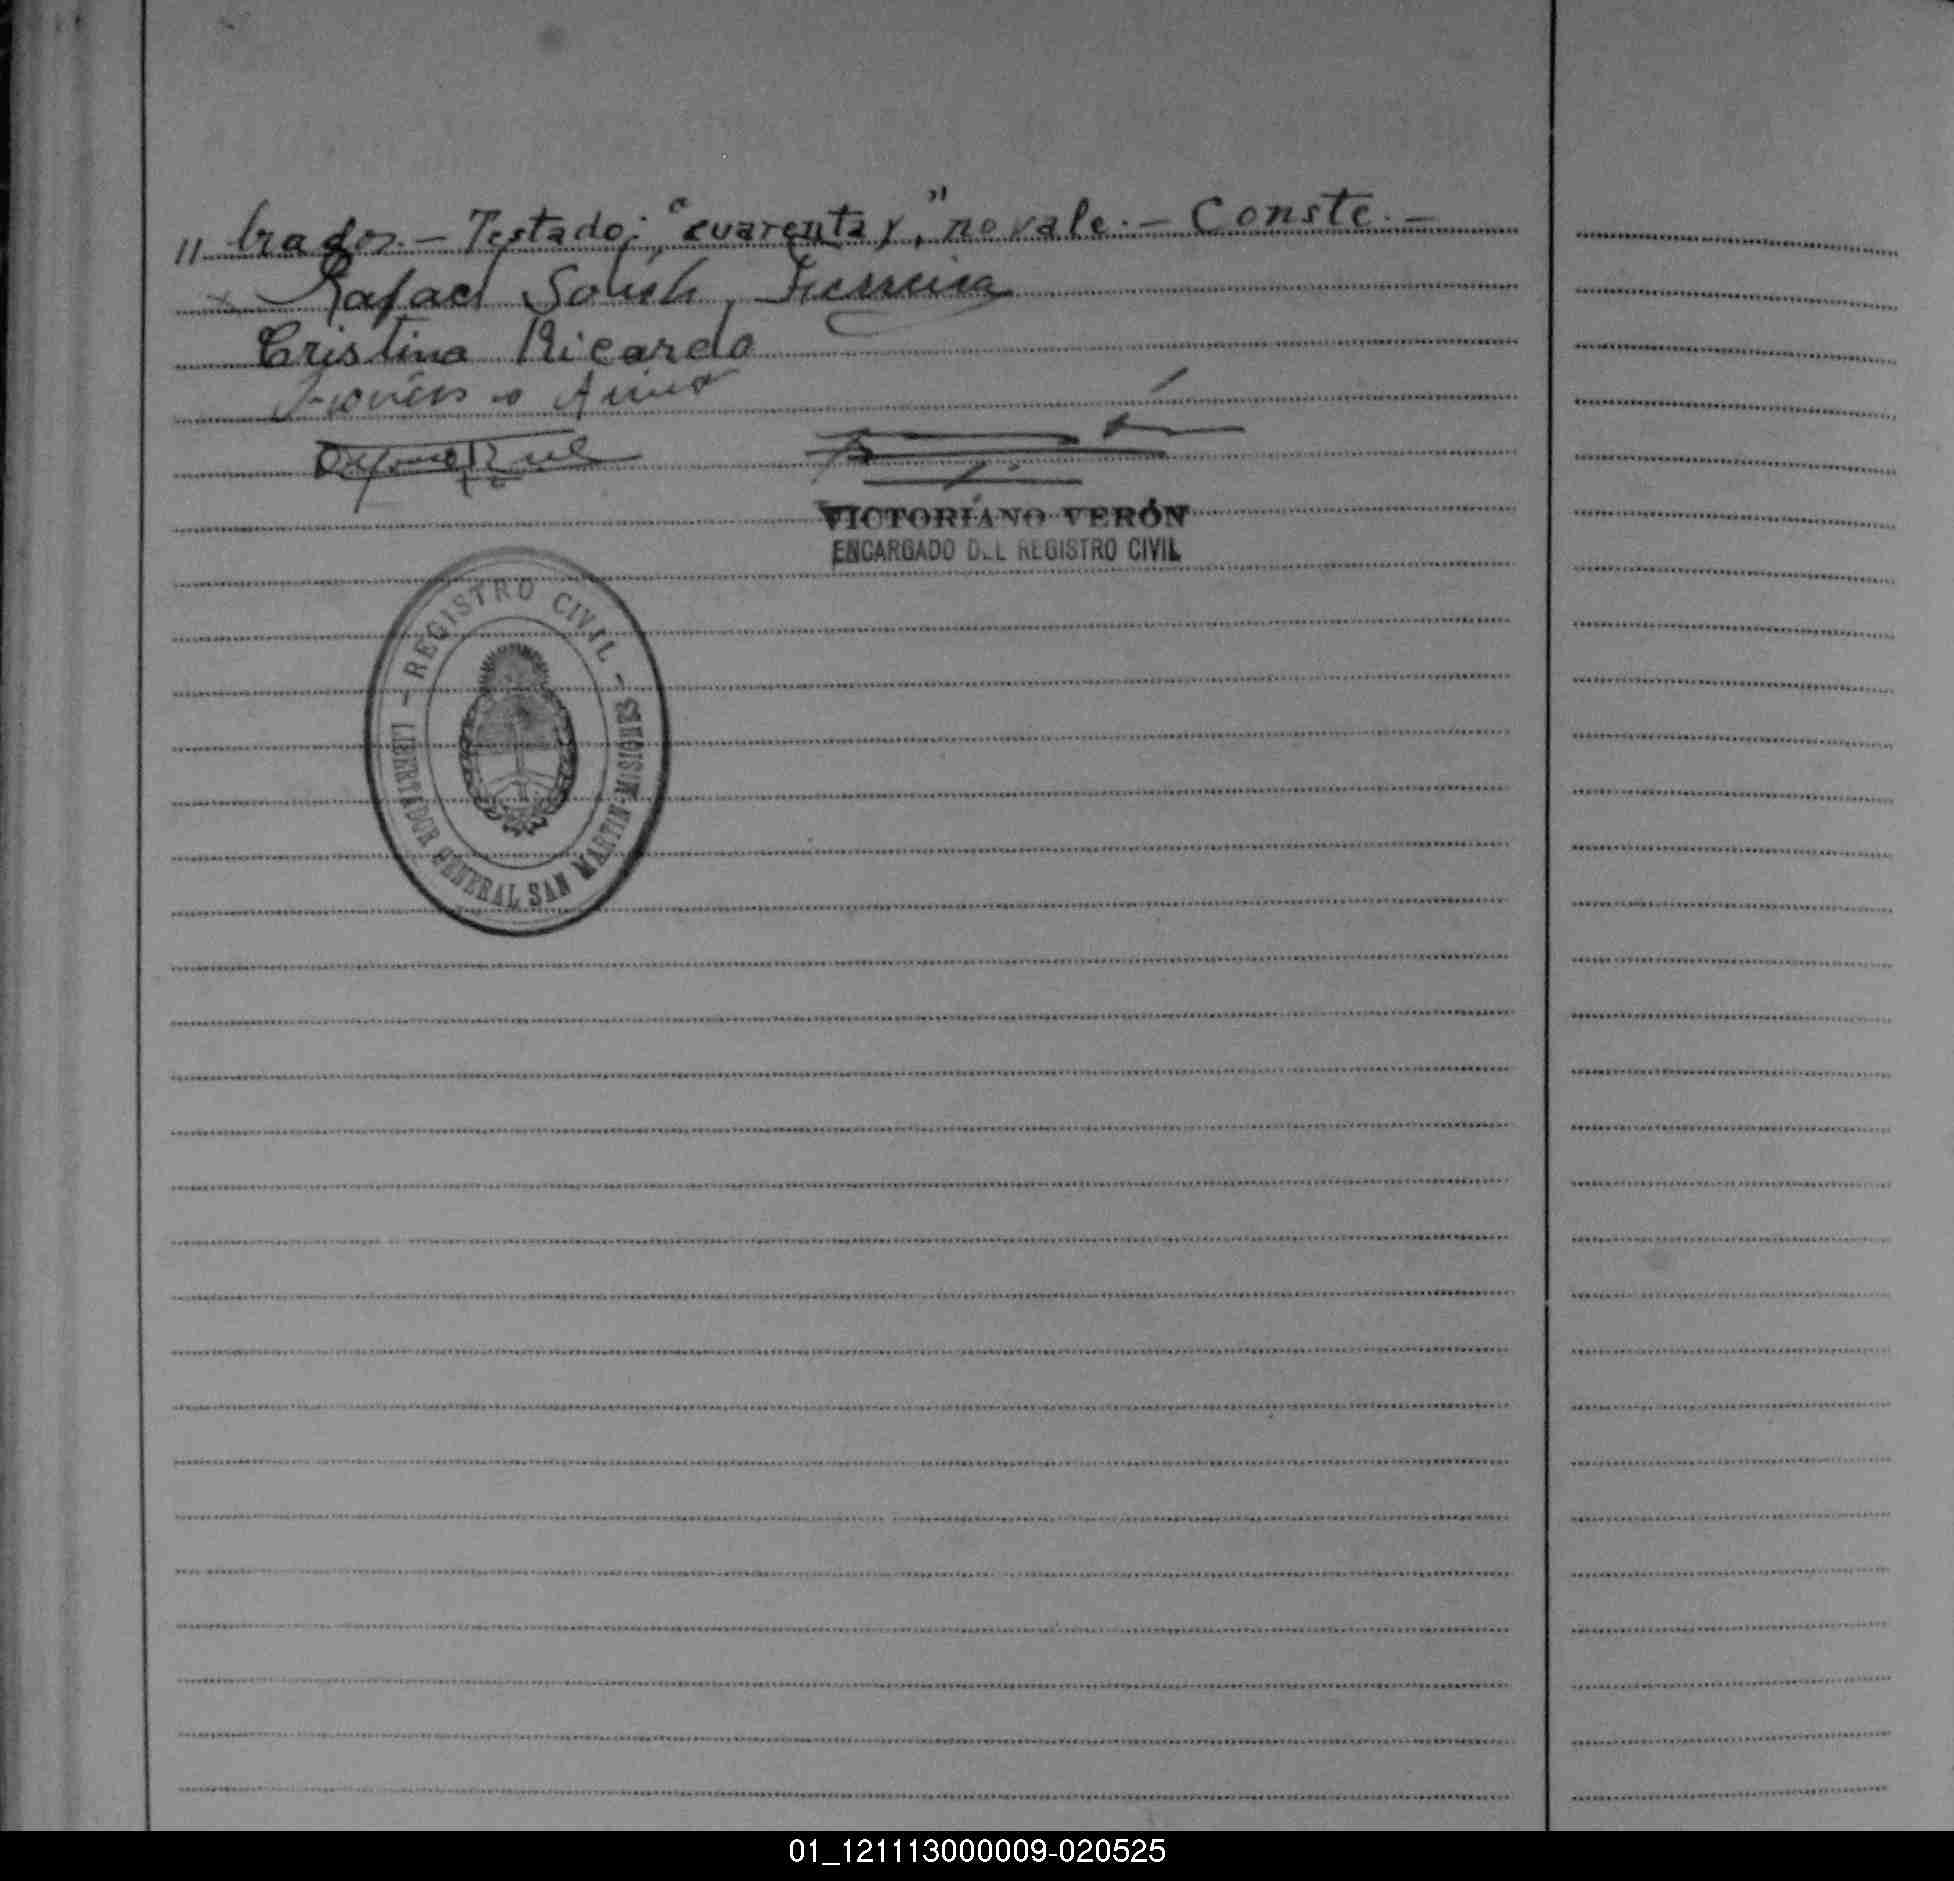 // trados.- Testado: "cuarenta y," no vale.- Conste.-
Rafael Ferreira
Cristina Ricardo
VICTORIANO VERÓN
ENCARGADO DEL REGISTRO CIVIL
- REGISTRO CIVIL -
LIBERTADOR GENERAL SAN MARTIN-MISIONES
01_121113000009-020525